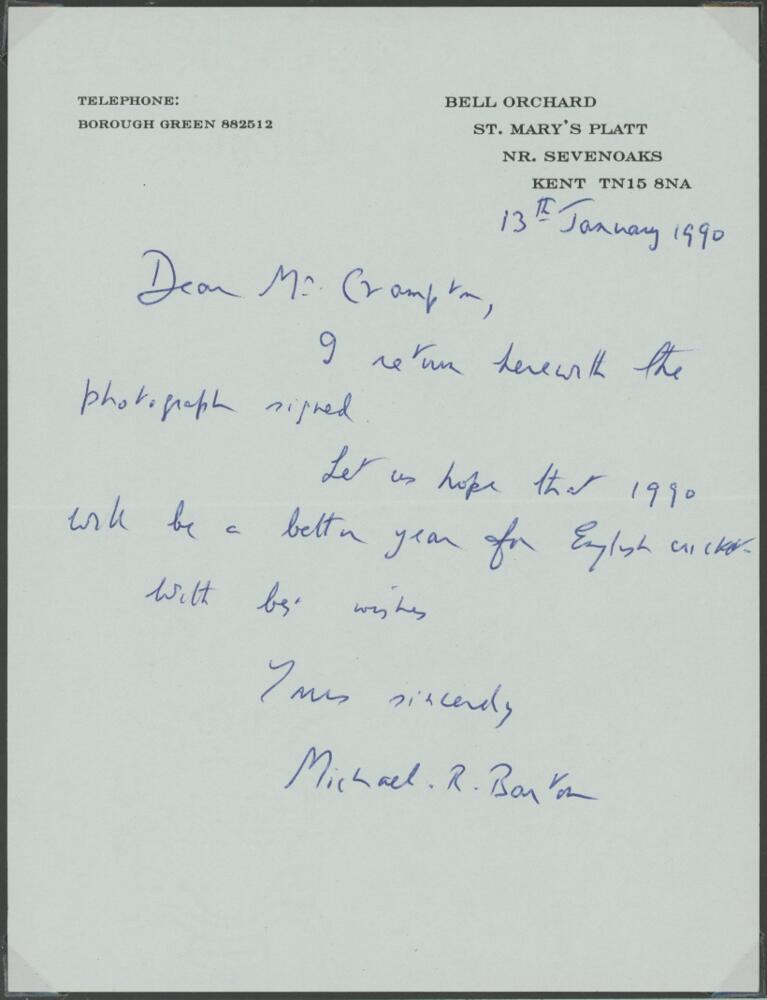 TELEPHONE:
BOROUGH GREEN 882512
BELL ORCHARD
ST. MARY'S PLATT
NR. SEVENOAKS
KENT TN15 8NA
13th January 1990
Dear Mr. Crampton,
I return herewith the
photograph signed.
Let us hope that 1990
will be a better year for English cricket.
With best wishes
Yours sincerely
Michael. R. Barton